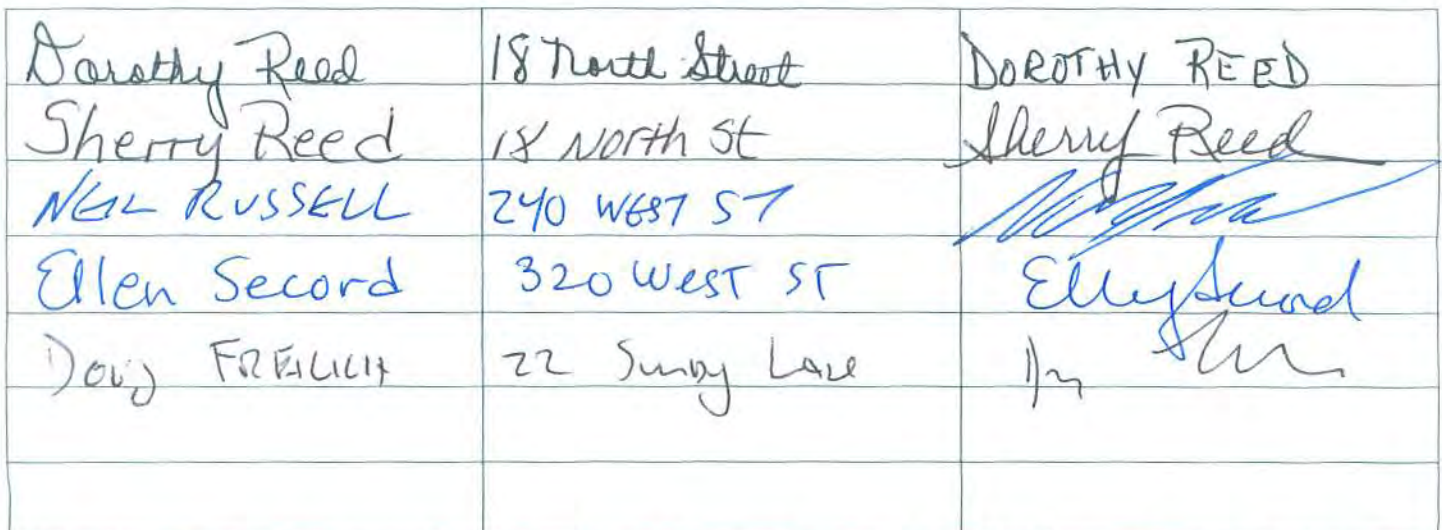 Dorothy Reed 18 North Street DOROTHY REED
Sherry Reed 18 North St Sherry Reed
NEIL RUSSELL 240 WEST ST
Ellen Secord 320 WEST ST Elly Secord
Doug FREILICH 22 Sunny Lane